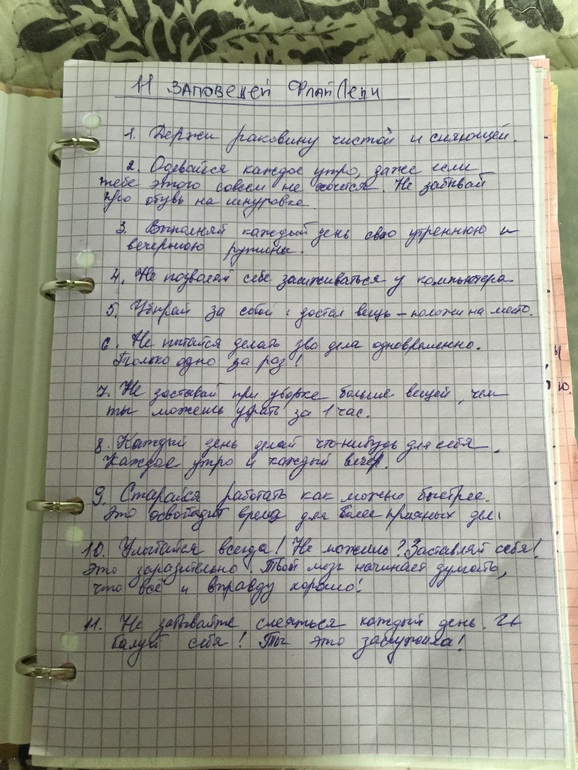 11 ЗАПОВЕДЕЙ ФЛАЙЛЕДИ
1. Держи раковину чистой и сияющей.
2. Одевайся каждое утро, даже если
тебе этого совсем не хочется. Не забывай
про обувь на шнуровке.
3. Выполняй каждый день свою утреннюю и
вечернюю рутины.
4. Не позволяй себе засиживаться у компьютера
5. Убирай за собой: достал вещь – положи на место.
6. Не пытайся делать два дела одновременно.
Только одно за раз!
7. Не доставай при уборке больше вещей, чем
ты можешь убрать за 1 час.
8. Каждый день делай что-нибудь для себя.
Каждое утро и каждый вечер.
9. Старайся работать как можно быстрее.
Это освободит время для более приятных дел.
10. Улыбайся всегда! Не можешь? Заставляй себя!
Это заразительно! Твой мозг начинает думать,
что всё и вправду хорошо!
11. Не забывайте смеяться каждый день.
балуй себя! Ты это заслужила!